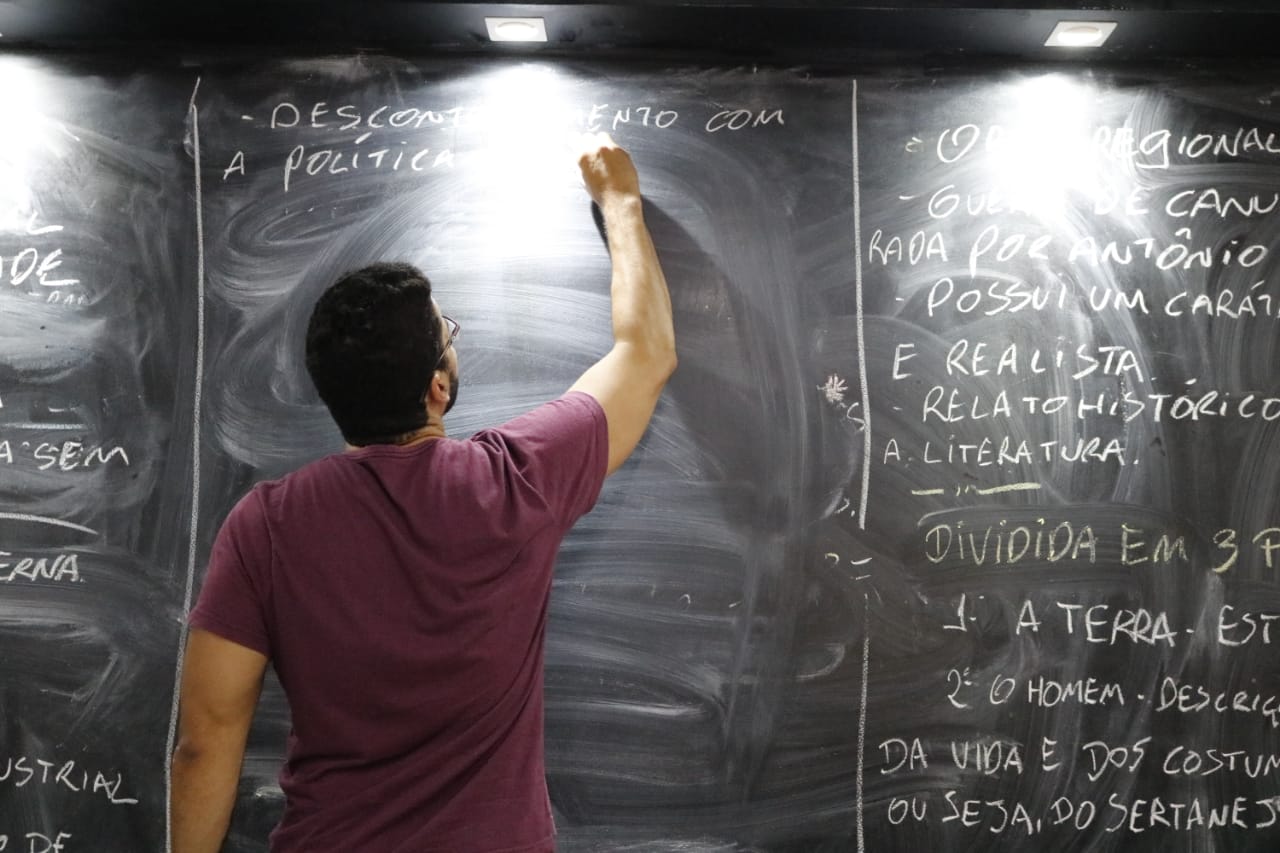 L
DE
A SEM
ERNA.
USTRIAL
DE
- DESCON MENTO COM
A POLÍTICA
REGIONAL
- GUE DE CANU
RADA POR ANTÔNIO
- POSSUI UM CARÁT
E REALISTA
- RELATO HISTÓRICO
A LITERATURA.
DIVIDIDA EM 3 P
1- A TERRA - EST
2ª O HOMEM - DESCRIÇ
DA VIDA E DOS COSTUM
OU SEJA, DO SERTANEJ